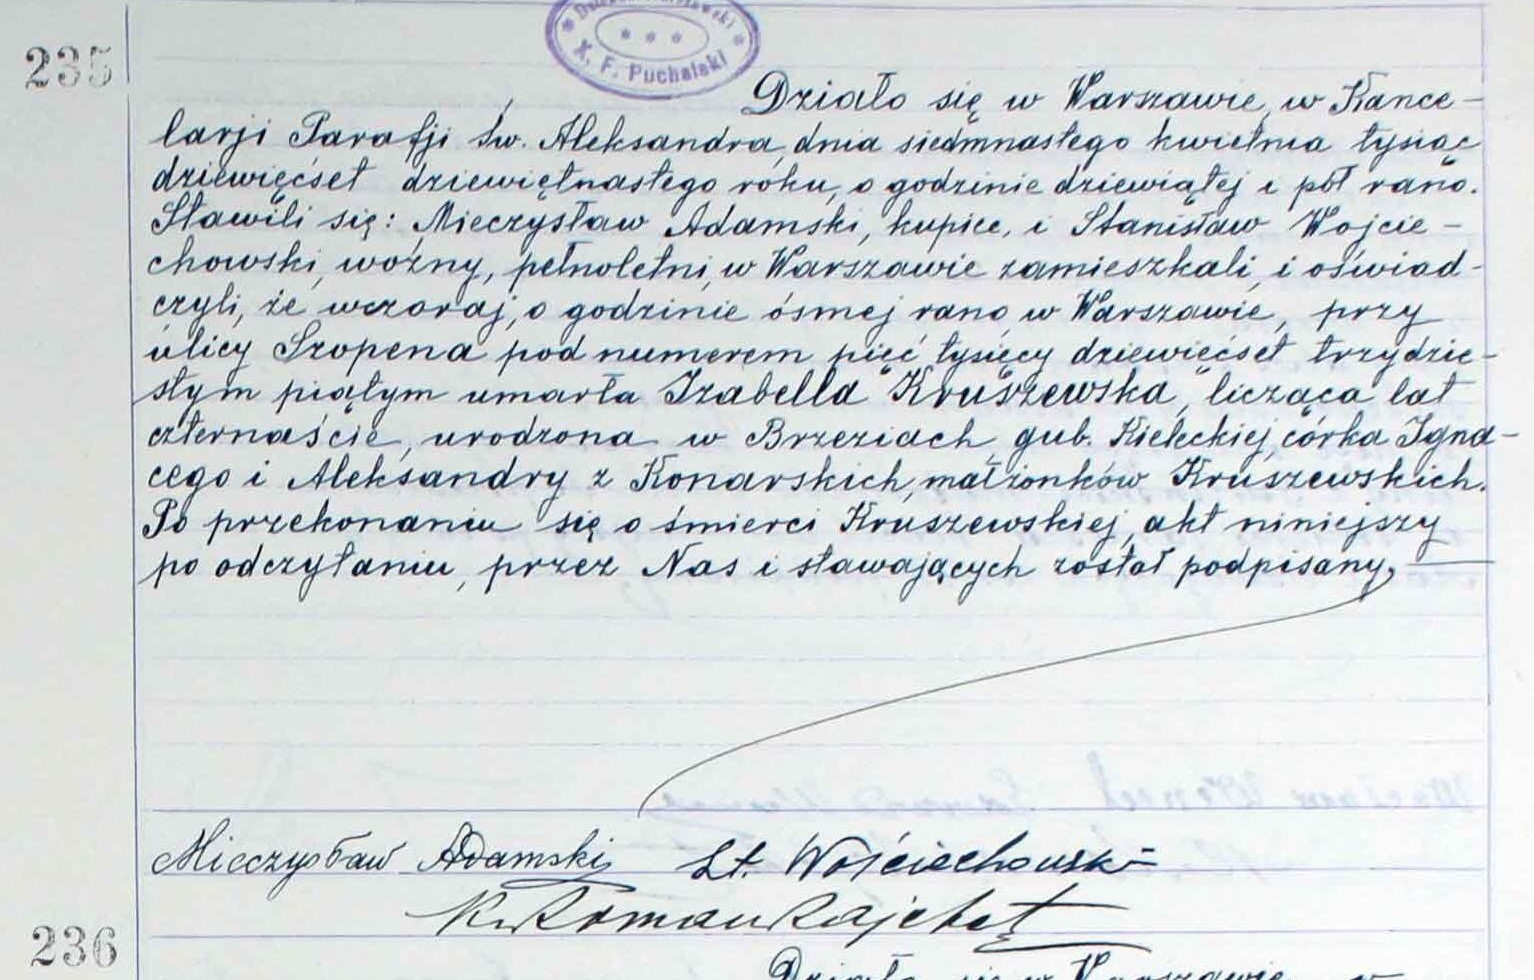 X. F. Puchalski
235
Działo się w Warszawie, w Kance-
larji Parafji Św. Aleksandra, dnia siedmnastego kwietnia tysiąc
dziewięćset dziewiętnastego roku, o godzinie dziewiątej i pół rano.
Stawili się: Mieczysław Adamski, kupiec, i Stanisław Wojcie-
chowski, woźny, pełnoletni, w Warszawie zamieszkali, i oświad-
czyli, że wczoraj, o godzinie ósmej rano w Warszawie, przy
ulicy Szopena pod numerem pięć tysięcy dziewięćset trzydzie-
stym piątym umarła Izabella Kruszewska, licząca lat
czternaście, urodzona w Brzeziach, gub. Kieleckiej, córka Igna-
cego i Aleksandry z Konarskich, małżonków Kruszewskich.
Po przekonaniu się o śmierci Kruszewskiej, akt niniejszy
po odczytaniu, przez Nas i stawających został podpisany,
Mieczysław Adamski St. Wojciechowski
Roman
236
Działo się w Warszawie, w